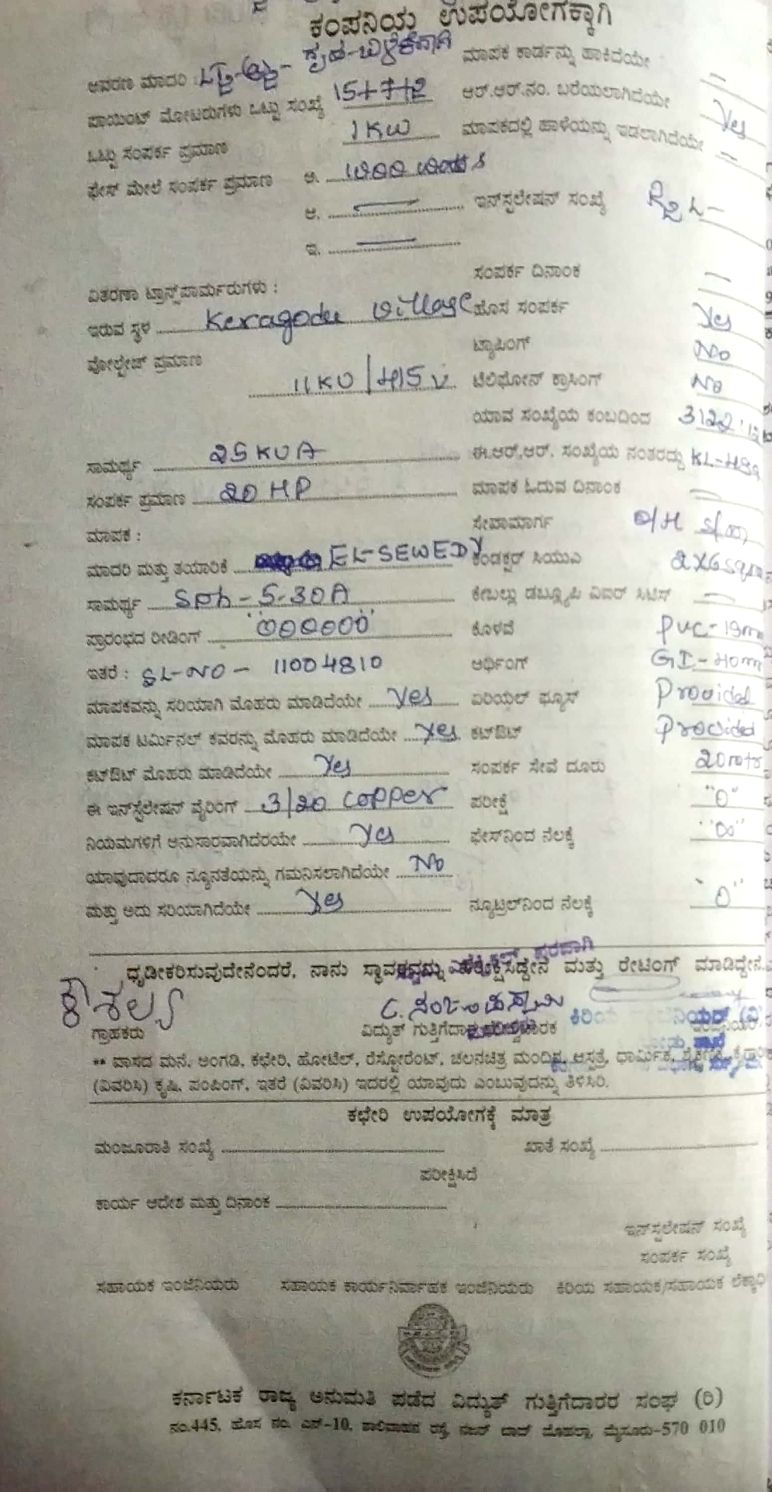 ಕಂಪನಿಯ ಉಪಯೋಗಕ್ಕಾಗಿ
ಆವರಣ ಮಾದರಿ : ಮಾಪಕ ಕಾರ್ಡನ್ನು ಹಾಕಿದೆಯೇ —
ಪಾಯಿಂಟ್ ಮೋಟರುಗಳು ಒಟ್ಟು ಸಂಖ್ಯೆ 15+7+2 ಆರ್.ಆರ್.ನಂ. ಬರೆಯಲಾಗಿದೆಯೇ Yes
ಒಟ್ಟು ಸಂಪರ್ಕ ಪ್ರಮಾಣ 1KW ಮಾಪಕದಲ್ಲಿ ಹಾಳೆಯನ್ನು ಇಡಲಾಗಿದೆಯೇ —
ಫೇಸ್ ಮೇಲೆ ಸಂಪರ್ಕ ಪ್ರಮಾಣ ಅ. 1000
ಆ. — ಇನ್‌ಸ್ಟಲೇಷನ್ ಸಂಖ್ಯೆ
ಇ. —
ಸಂಪರ್ಕ ದಿನಾಂಕ —
ವಿತರಣಾ ಟ್ರಾನ್ಸ್‌ಪಾರ್ಮರುಗಳು :
ಇರುವ ಸ್ಥಳ Keragodu village ಹೊಸ ಸಂಪರ್ಕ Yes
ವೋಲ್ಟೇಜ್ ಪ್ರಮಾಣ ಟ್ಯಾಪಿಂಗ್ No
11KV/415 V ಟೆಲಿಫೋನ್ ಕ್ರಾಸಿಂಗ್ No
ಯಾವ ಸಂಖ್ಯೆಯ ಕಂಬದಿಂದ
ಸಾಮರ್ಥ್ಯ 25KVA ಈ.ಆರ್,ಆರ್. ಸಂಖ್ಯೆಯ ನಂತರದ್ದು
ಸಂಪರ್ಕ ಪ್ರಮಾಣ 20 HP ಮಾಪಕ ಓದುವ ದಿನಾಂಕ —
ಮಾಪಕ : ಸೇವಾಮಾರ್ಗ O/H
ಮಾದರಿ ಮತ್ತು ತಯಾರಿಕೆ EL-SEWEDY ಕಂಡಕ್ಟರ್ ಸಿಯುಎ 2X6sqmm
ಸಾಮರ್ಥ್ಯ SPh-5-30A ಕೇಬಲ್ಲು ಡಬ್ಲ್ಯೂಪಿ ವಿಐರ್ ಸಿಟಿಸ್ —
ಪ್ರಾರಂಭದ ರೀಡಿಂಗ್ "000000" ಕೊಳವೆ PVC-19mm
ಇತರೆ : SL-NO - 11004810 ಆರ್ಥಿಂಗ್ GI-40mm
ಮಾಪಕವನ್ನು ಸರಿಯಾಗಿ ಮೊಹರು ಮಾಡಿದೆಯೇ Yes ಏರಿಯಲ್ ಫ್ಯೂಸ್ Provided
ಮಾಪಕ ಟರ್ಮಿನಲ್ ಕವರನ್ನು ಮೊಹರು ಮಾಡಿದೆಯೇ Yes ಕಟ್‌ಔಟ್ Provided
ಕಟ್‌ಔಟ್ ಮೊಹರು ಮಾಡಿದೆಯೇ Yes ಸಂಪರ್ಕ ಸೇವೆ ದೂರು 20mtr
ಈ ಇನ್‌ಸ್ಟಲೇಷನ್ ವೈರಿಂಗ್ 3/20 copper ಪರೀಕ್ಷೆ "0"
ನಿಯಮಗಳಿಗೆ ಅನುಸಾರವಾಗಿದೆರಯೇ Yes ಫೇಸ್‌ನಿಂದ ನೆಲಕ್ಕೆ "00"
ಯಾವುದಾದರೂ ನ್ಯೂನತೆಯನ್ನು ಗಮನಿಸಲಾಗಿದೆಯೇ No
ಮತ್ತು ಅದು ಸರಿಯಾಗಿದೆಯೇ Yes ನ್ಯೂಟ್ರಲ್‌ನಿಂದ ನೆಲಕ್ಕೆ "0"
ಧೃಡೀಕರಿಸುವುದೇನೆಂದರೆ, ನಾನು ಸ್ಥಾವರವನ್ನು ಪರೀಕ್ಷಿಸಿದ್ದೇನೆ ಮತ್ತು ರೇಟಿಂಗ್ ಮಾಡಿದ್ದೇನೆ.
ಕೌಶಲ್ಯ
ಗ್ರಾಹಕರು ವಿದ್ಯುತ್ ಗುತ್ತಿಗೆದಾರ
** ವಾಸದ ಮನೆ, ಅಂಗಡಿ, ಕಛೇರಿ, ಹೋಟೆಲ್, ರೆಸ್ಟೋರೆಂಟ್, ಚಲನಚಿತ್ರ ಮಂದಿರ, ಆಸ್ಪತ್ರೆ, ಧಾರ್ಮಿಕ, ಶೈಕ್ಷಣಿಕ,
(ವಿವರಿಸಿ) ಕೃಷಿ, ಪಂಪಿಂಗ್, ಇತರೆ (ವಿವರಿಸಿ) ಇದರಲ್ಲಿ ಯಾವುದು ಎಂಬುವುದನ್ನು ತಿಳಿಸಿರಿ.
ಕಛೇರಿ ಉಪಯೋಗಕ್ಕೆ ಮಾತ್ರ
ಮಂಜೂರಾತಿ ಸಂಖ್ಯೆ ಖಾತೆ ಸಂಖ್ಯೆ
ಪರೀಕ್ಷಿಸಿದೆ
ಕಾರ್ಯ ಆದೇಶ ಮತ್ತು ದಿನಾಂಕ
ಇನ್‌ಸ್ಟಲೇಷನ್ ಸಂಖ್ಯೆ
ಸಂಪರ್ಕ ಸಂಖ್ಯೆ
ಸಹಾಯಕ ಇಂಜಿನಿಯರು ಸಹಾಯಕ ಕಾರ್ಯನಿರ್ವಾಹಕ ಇಂಜಿನಿಯರು ಕಿರಿಯ ಸಹಾಯಕ/ಸಹಾಯಕ
ಕರ್ನಾಟಕ ರಾಜ್ಯ ಅನುಮತಿ ಪಡೆದ ವಿದ್ಯುತ್ ಗುತ್ತಿಗೆದಾರರ ಸಂಘ (ರಿ)
ನಂ.445, ಹೊಸ ನಂ. ಎನ್-10, ಶಾಲಿವಾಹನ ರಸ್ತೆ, ನಜರ್ ಬಾದ್ ಮೊಹಲ್ಲಾ, ಮೈಸೂರು-570 010